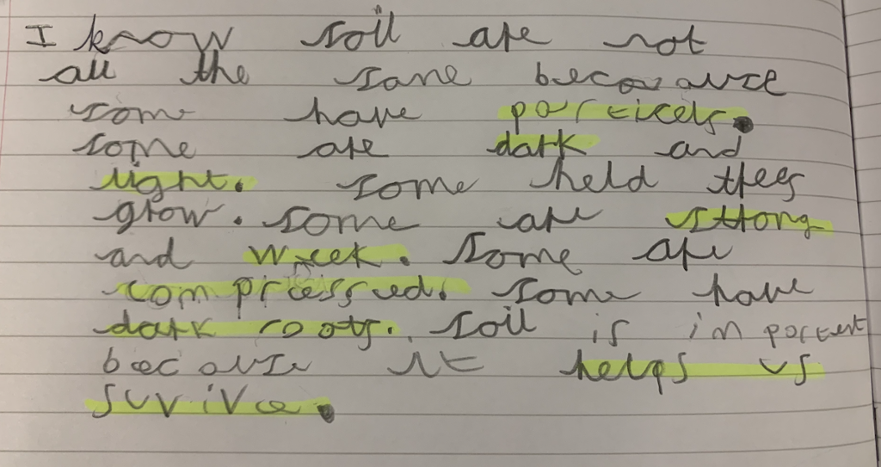 I know soil are not
all the same becouause
some have particels.
some are dark and
light. some held trees
grow. some are strong
and week. some are
compressed. some have
dark roots. soil is inportent
becouse it helps us
survive.